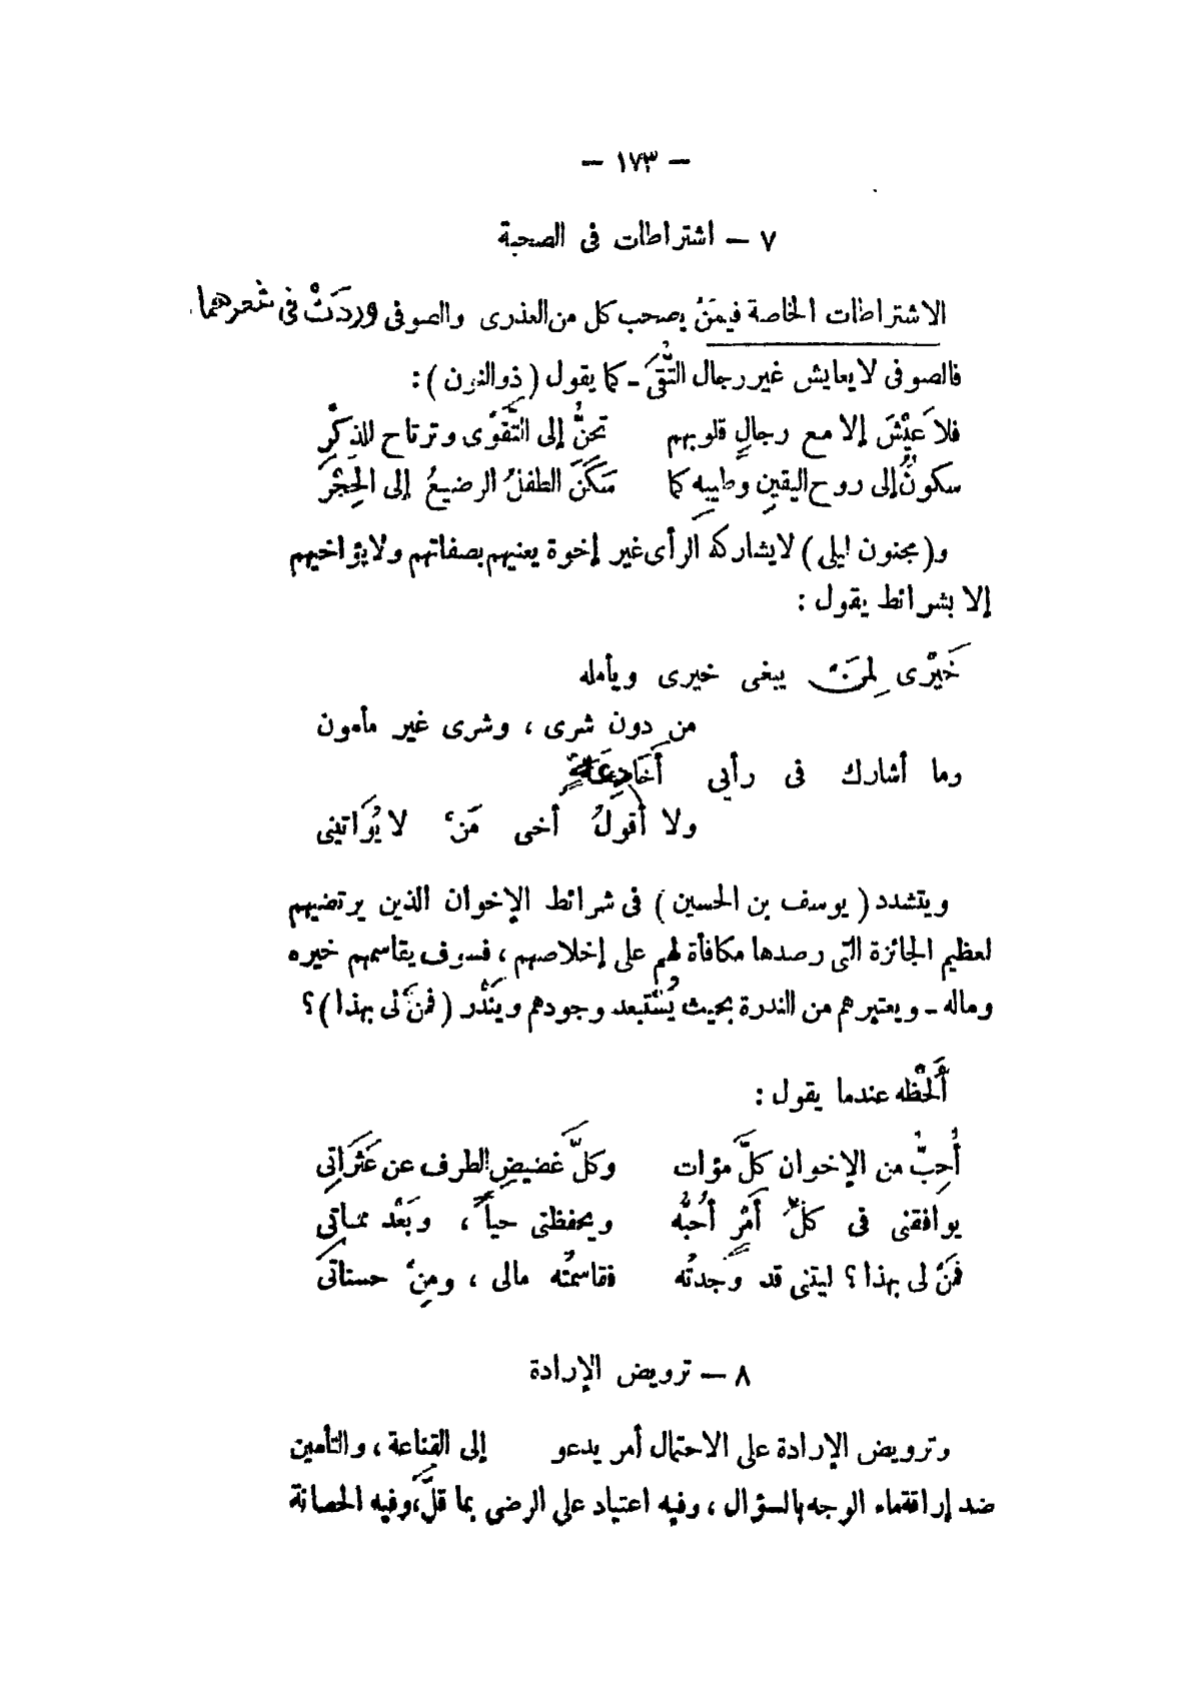 — ١٧٣ —
٧ — اشتراطات فى الصحبة
الاشتراطات الخاصة فيمَنْ يصحب كل من العذرى والصوفى وردَتْ فى شعرهما.
فالصوفى لا يعايش غير رجال التُّقَى ـ كما يقول ( ذو النون ) :
فلا عَيْشَ إلا مع رجالٍ قلوبهم تحِنُّ إلى التَّقْوَى وترتاح للذِكْرِ
سكونٌ إلى روح اليقينِ وطيبِه كما سَكَنَ الطفلُ الرضيعُ إلى الحِجْرَ
و( مجنون ليلى ) لا يشاركه الرأى غير إخوة يعنيهم بصفاتهم ولا يؤاخيهم
إلا بشرائط يقول :
خَيْرى لِمَنْ يبغى خيرى ويأمله
من دون شرى ، وشرى غير مأمون
وما أشارك فى رأيى أخَا
ولا أقولُ أخى مَنْ لا يُوَاتينى
ويتشدد ( يوسف بن الحسين ) فى شرائط الإخوان الذين يرتضيهم
لعظيم الجائزة التى رصدها مكافأة لهم على إخلاصهم ، فسوف يقاسمهم خيره
وماله ـ ويعتبرهم من الندرة بحيث يُسْتبعد وجودهم ويَنْدُر ( فمَنْ لى بهذا ) ؟
أَلْحَظْه عندما يقول :
أُحِبُّ من الإخوان كلَّ مؤات وكلَّ غضيضِ الطرف عن عَثَرَاتِى
يوافقنى فى كلِّ أمْرٍ أُحبُّه ويحفظنى حياً ، وبَعْد مماتِى
فمَنْ لى بهذا ؟ ليتنى قد وَجدتُه فقاسمتُه مالى ، ومِنْ حسناتَى
٨ — ترويض الإرادة
وترويض الإرادة على الاحتمال أمر يدعو إلى القناعة ، والتأمين
ضد إراقة ماء الوجه بالسؤال ، وفيه اعتياد على الرضى بما قلَّ، وفيه الحصانة